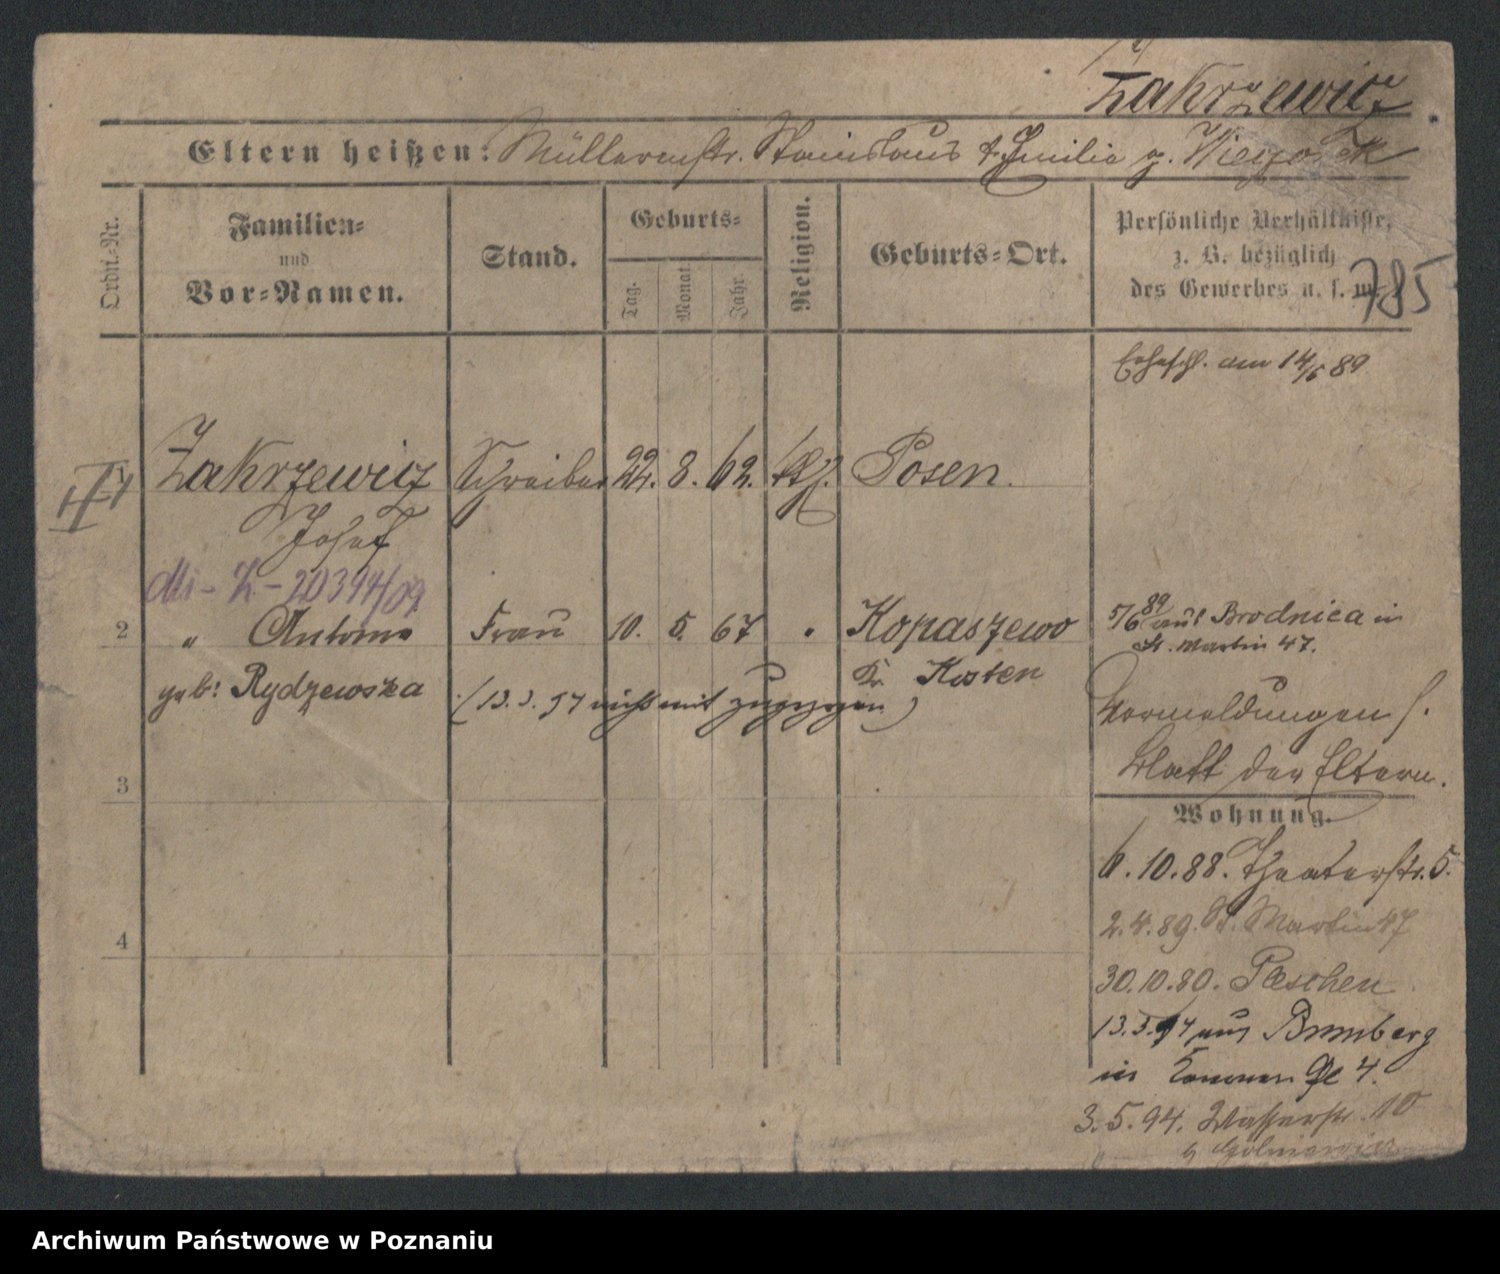 Zakrzewicz
Eltern heißen: Müllermstr. Stanislaus & Emilia g.
Ordn.-Nr.
Familien- und Vor-Namen.
Stand.
Geburts-
Tag.
Monat
Jahr.
Religion.
Geburts-Ort.
Persönliche Verhältnisse,
z. B. bezüglich
des Gewerbes u. s. w.
785
Eheschl. am 14/5 89
Zakrzewicz Schreiber 22. 8. 62. kth. Posen.
Josef
Mi-Z-20394/09
2 " Antonie Frau 10. 5. 67 " Kopaszewo
Kr. Kosten
geb: Rydzewska (13.3.97 nicht mit zugezogen)
5/6 89 aus Brodnica in
St. Martin 47.
Vormeldungen s.
Blatt der Eltern.
3
Wohnung.
6.10.88. Theaterstr. 5.
2.4.89. St. Martin 47
4
30.10.80. Pleschen
13.3.97 aus Bromberg
in Kanonen Pl 4.
3.5.94. Wasserstr. 10
Archiwum Państwowe w Poznaniu